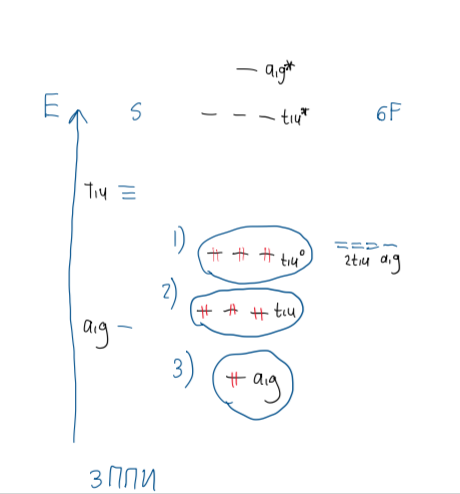 a₁g*
E S t₁u* 6F
t₁u
1) t₁u° 2t₁u a₁g
2) t₁u
a₁g
3) a₁g
3ППИ